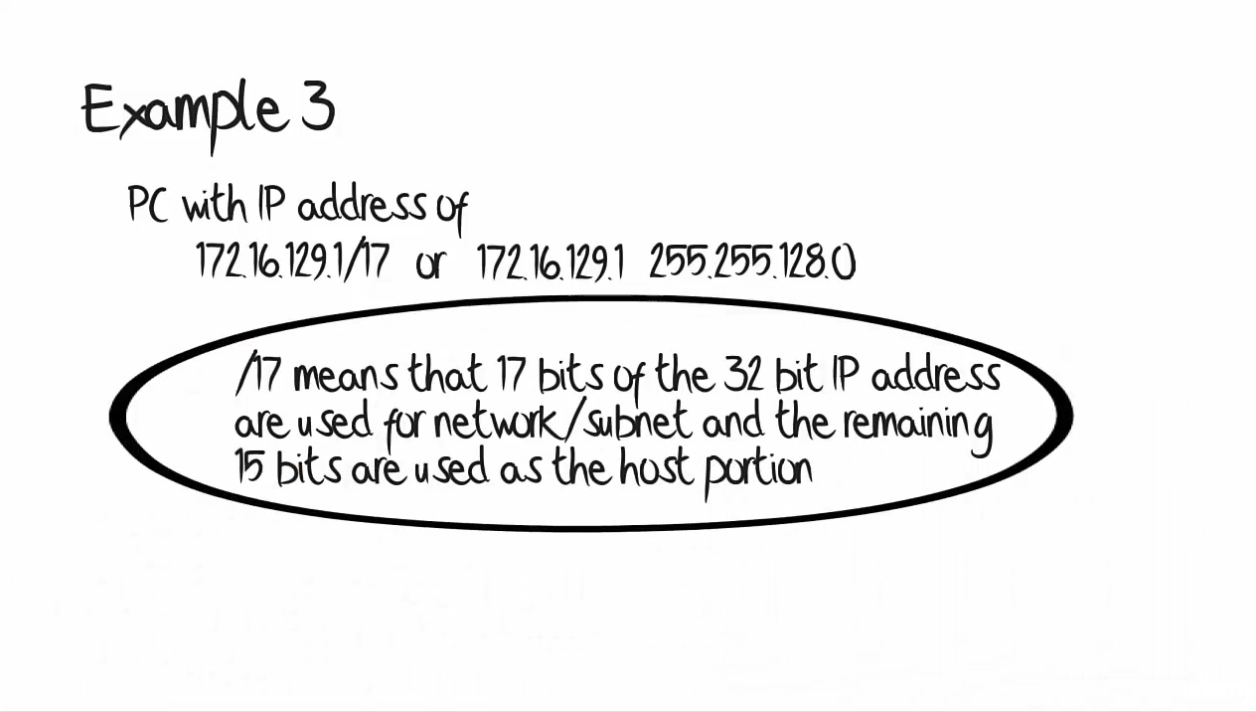 Example 3
PC with IP address of
172.16.129.1/17 or 172.16.129.1 255.255.128.0
/17 means that 17 bits of the 32 bit IP address
are used for network/subnet and the remaining
15 bits are used as the host portion